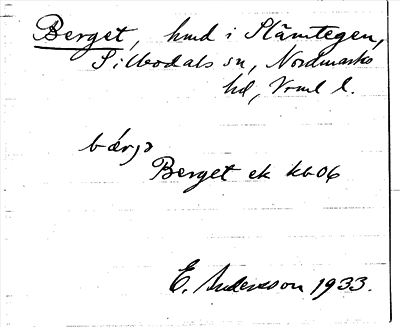 Berget, hmd i Slämtegen,
Silbodals sn, Nordmarks
hd, Vrml l.
bærjə
Berget ek kb 06
E. Andersson 1933.